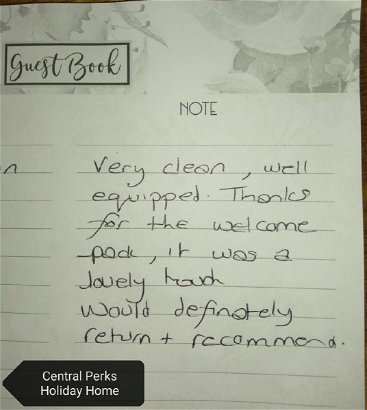 Guest Book
NOTE
n
Very clean, well
equipped. Thanks
for the welcome
pack, it was a
lovely touch
Would definately
return + recommend.
Central Perks
Holiday Home